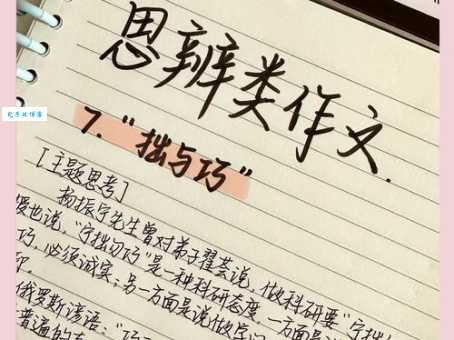 思辨类作文.
7.“拙与巧”
[主题思考]
杨振宁先生曾对弟子翟荟说,做科研要“宁拙
也说,“宁拙勿巧”是一种科研态度,一方面是
巧,必须诚实;另一方面是说做学问
俄罗斯谚语:“巧
普通的